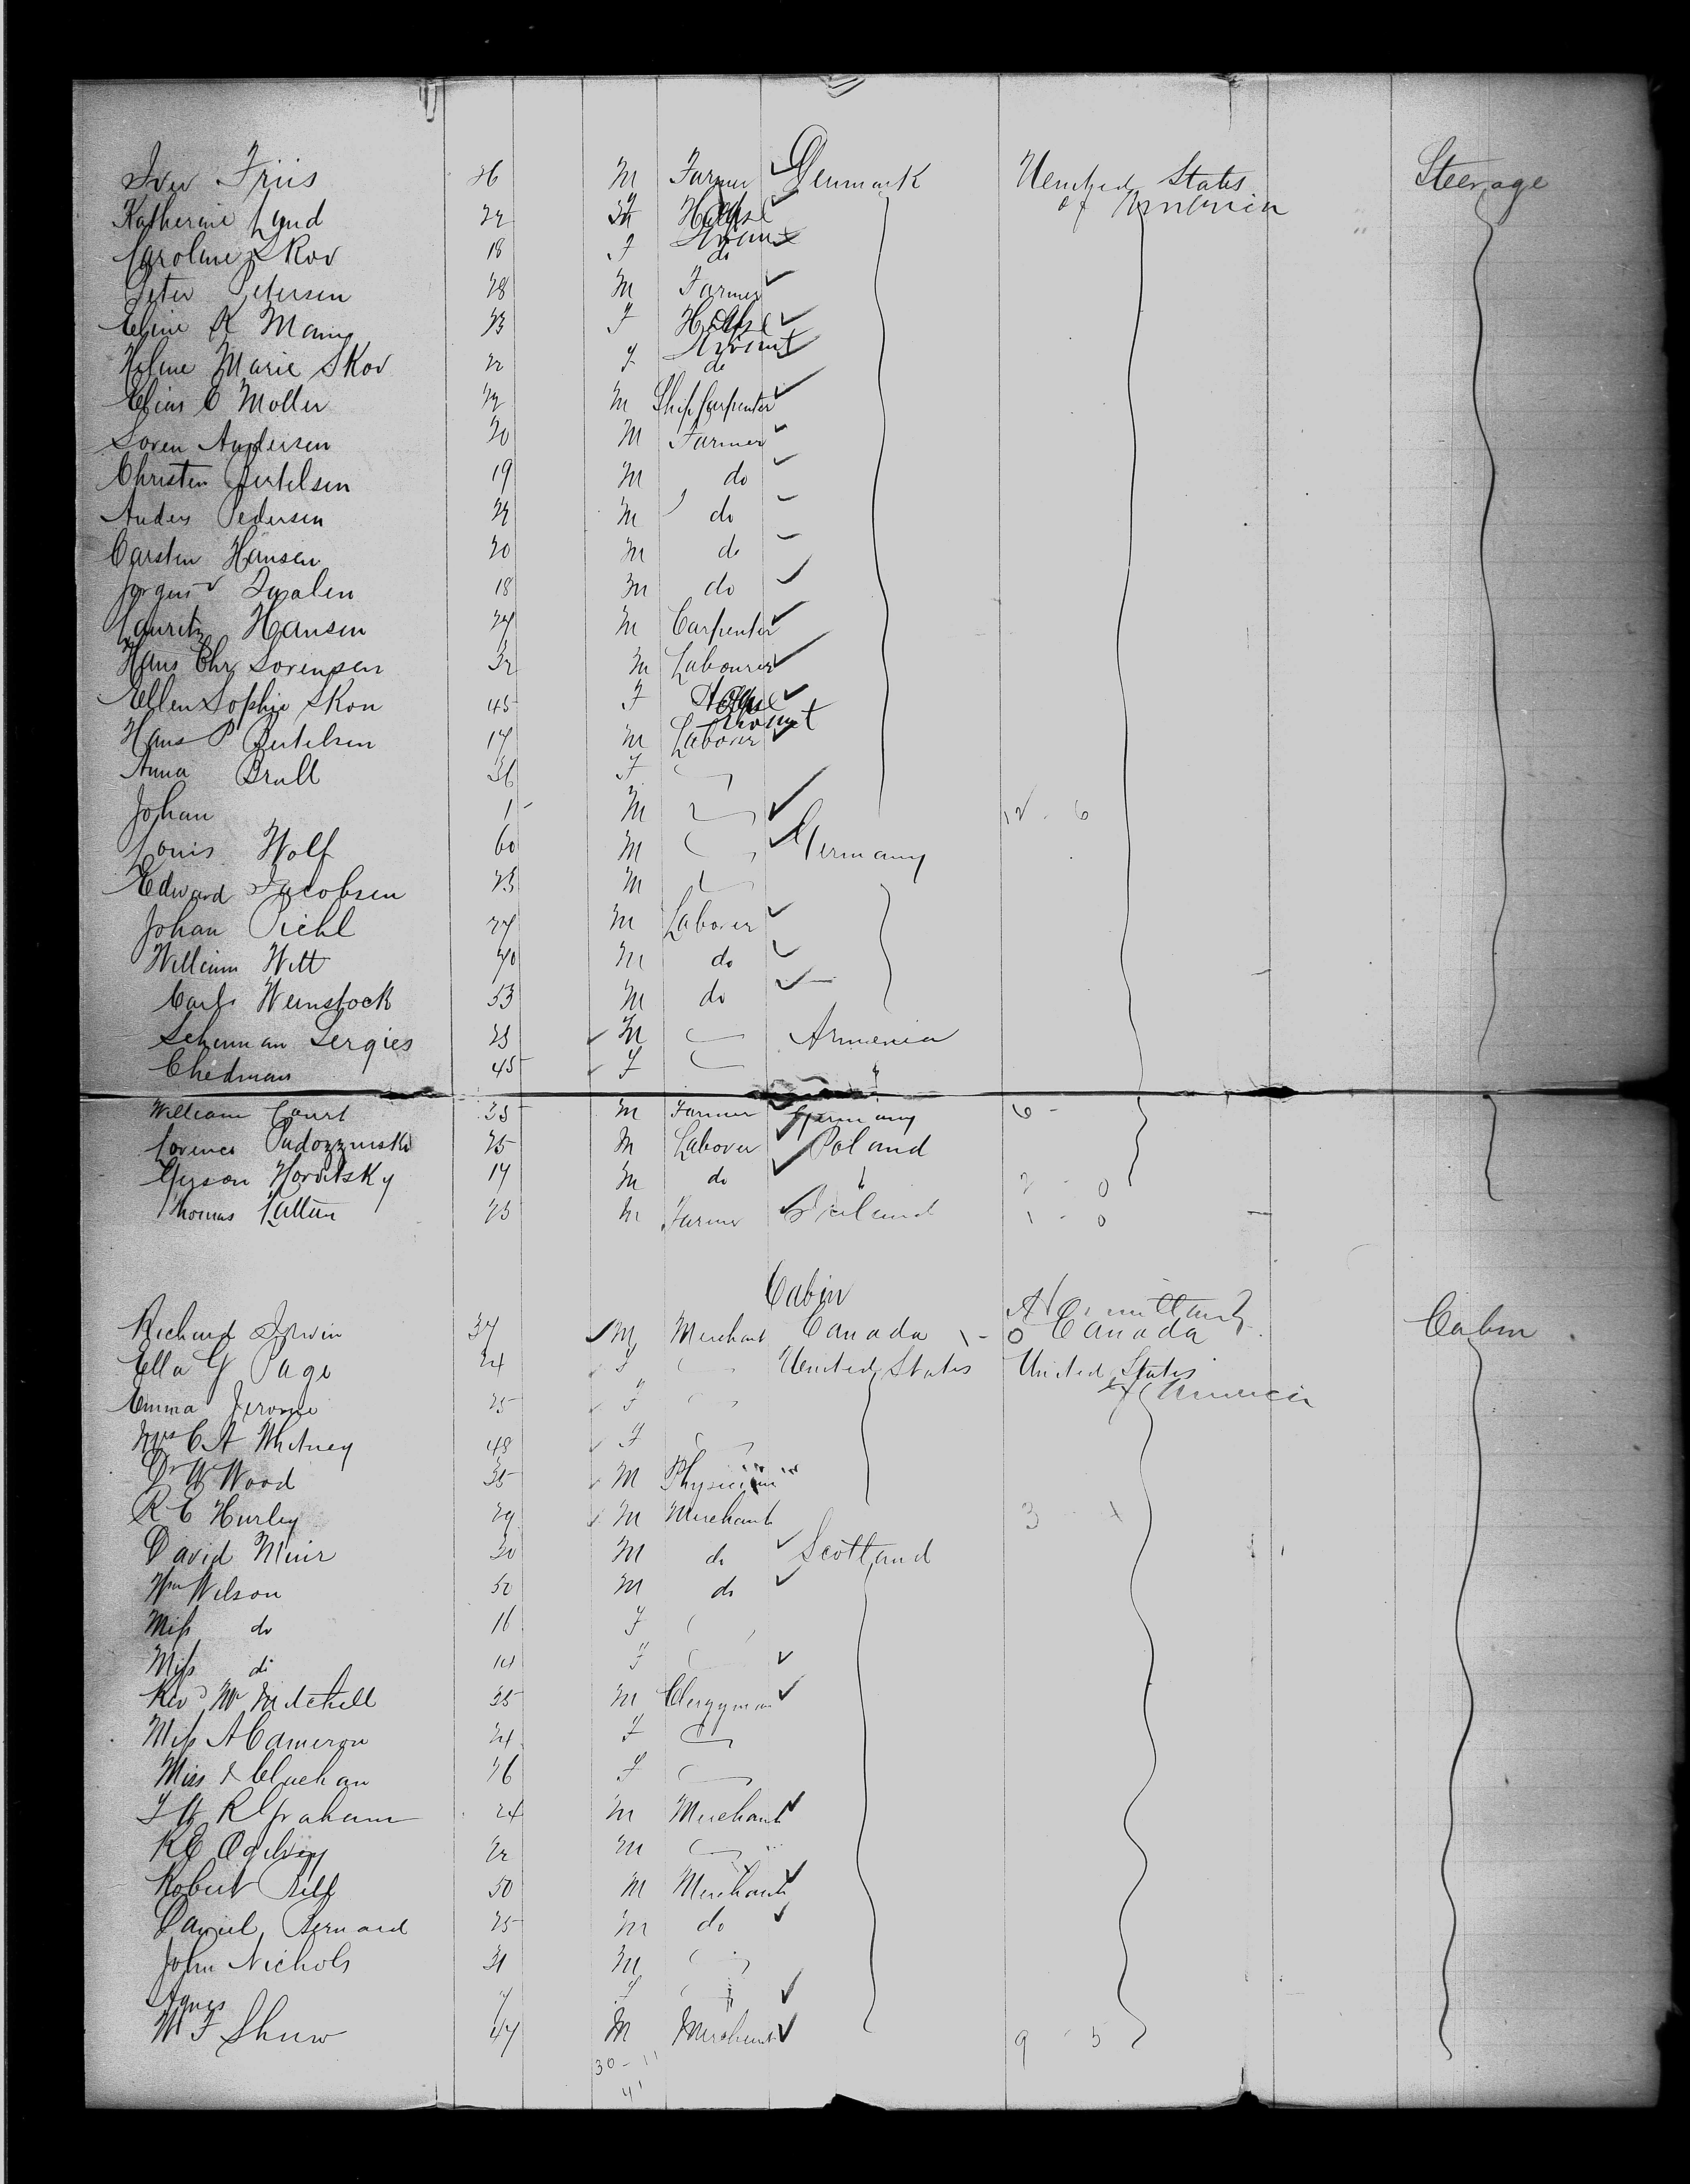 Iver Friis 26 M Farmer Denmark United States Steerage
of America
Katherine Lund 22 F House
Servant
Caroline Skov 18 F do
Peter Petersen 28 M Farmer
Eline K Mann 23 F House
Servant
Heline Marie Skov 22 F do
Elias C Moller M Ship Carpenter
Soren Andersen 20 M Farmer
Christen Bertelsen 19 M do
Anders Pedersen M do
Carsten Hansen 20 M do
Jorgen 18 M do
Lauritz Hansen 24 M Carpenter
Hans Chr Sorensen 32 M Labourer
Ellen Sophie Skov 45 F House
Servant
Hans P Bertelsen 17 M Laborer
Anna Brall 36 F
Johan 1 M 12 - 6
Louis Wolf 60 M Germany
Edward Jacobsen 23 M
Johan Piehl 27 M Laborer
William Witt 40 M do
Carl Weinstock 53 M do
Sergies M Armenia
Chedman 45 F "
William Court 35 M Farmer Germany 6 -
Lorence 25 M Laborer Poland
Horvitsky 17 M do " 2 - 0
Thomas 23 M Farmer Ireland 1 - 0
Cabin
Richard Irwin 37 M Merchant Canada 1 - 0 Canada Cabin
Ella G Page 24 F United States United States
of America
Emma Jerome 25 F
Mrs C A Whitney 48 F
Dr W Wood 35 M Physician
R E Hurley 29 M Merchant 3 - x
David Muir 30 M do Scotland
Wm Wilson 50 M do
Miss do 16 F
Miss do 14 F
Revd Mr Mitchell 35 M Clergyman
Miss A Cameron 24 F
Miss 26 F
R Graham 24 M Merchant
R E Ogilvy 22 M
Robert Bell 50 M Merchant
Daniel Bernard 25 M do
John Nichols 31 M
Agnes F
W F Shaw 47 M Merchant 9 - 5
30 - 11
41